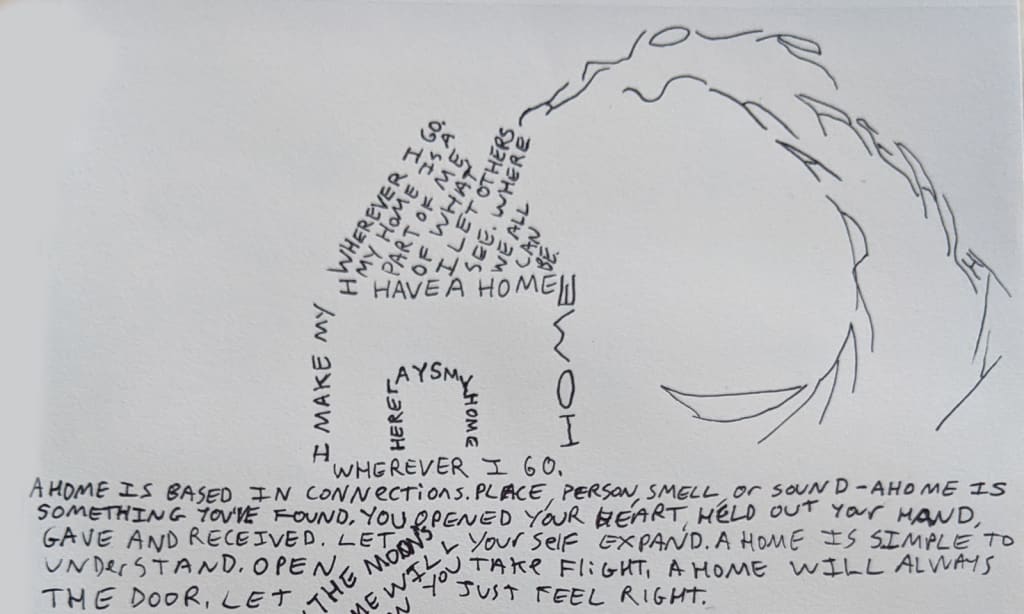 I WHEREVER I GO.
MY HOME IS A
PART OF ME
OF WHAT
I LET OTHERS
SEE. WHERE
WE ALL
CAN
BE.
HAVE A HOME
I MAKE MY
HOME
HERE
AYSMY
HOME
WHEREVER I GO.
A HOME IS BASED IN CONNECTIONS. PLACE, PERSON, SMELL, or SOUND - A HOME IS
SOMETHING YOU'VE FOUND. YOU OPENED YOUR HEART, HELD OUT Your HAND,
GAVE AND RECEIVED. LET Your Self EXPAND. A HOME IS SIMPLE TO
UNDerSTAND. OPEN YOU TAKE FLIGHT, A HOME WILL ALWAYS
THE DOOR. LET JUST FEEL RIGHT.
THE MOONS
WILL